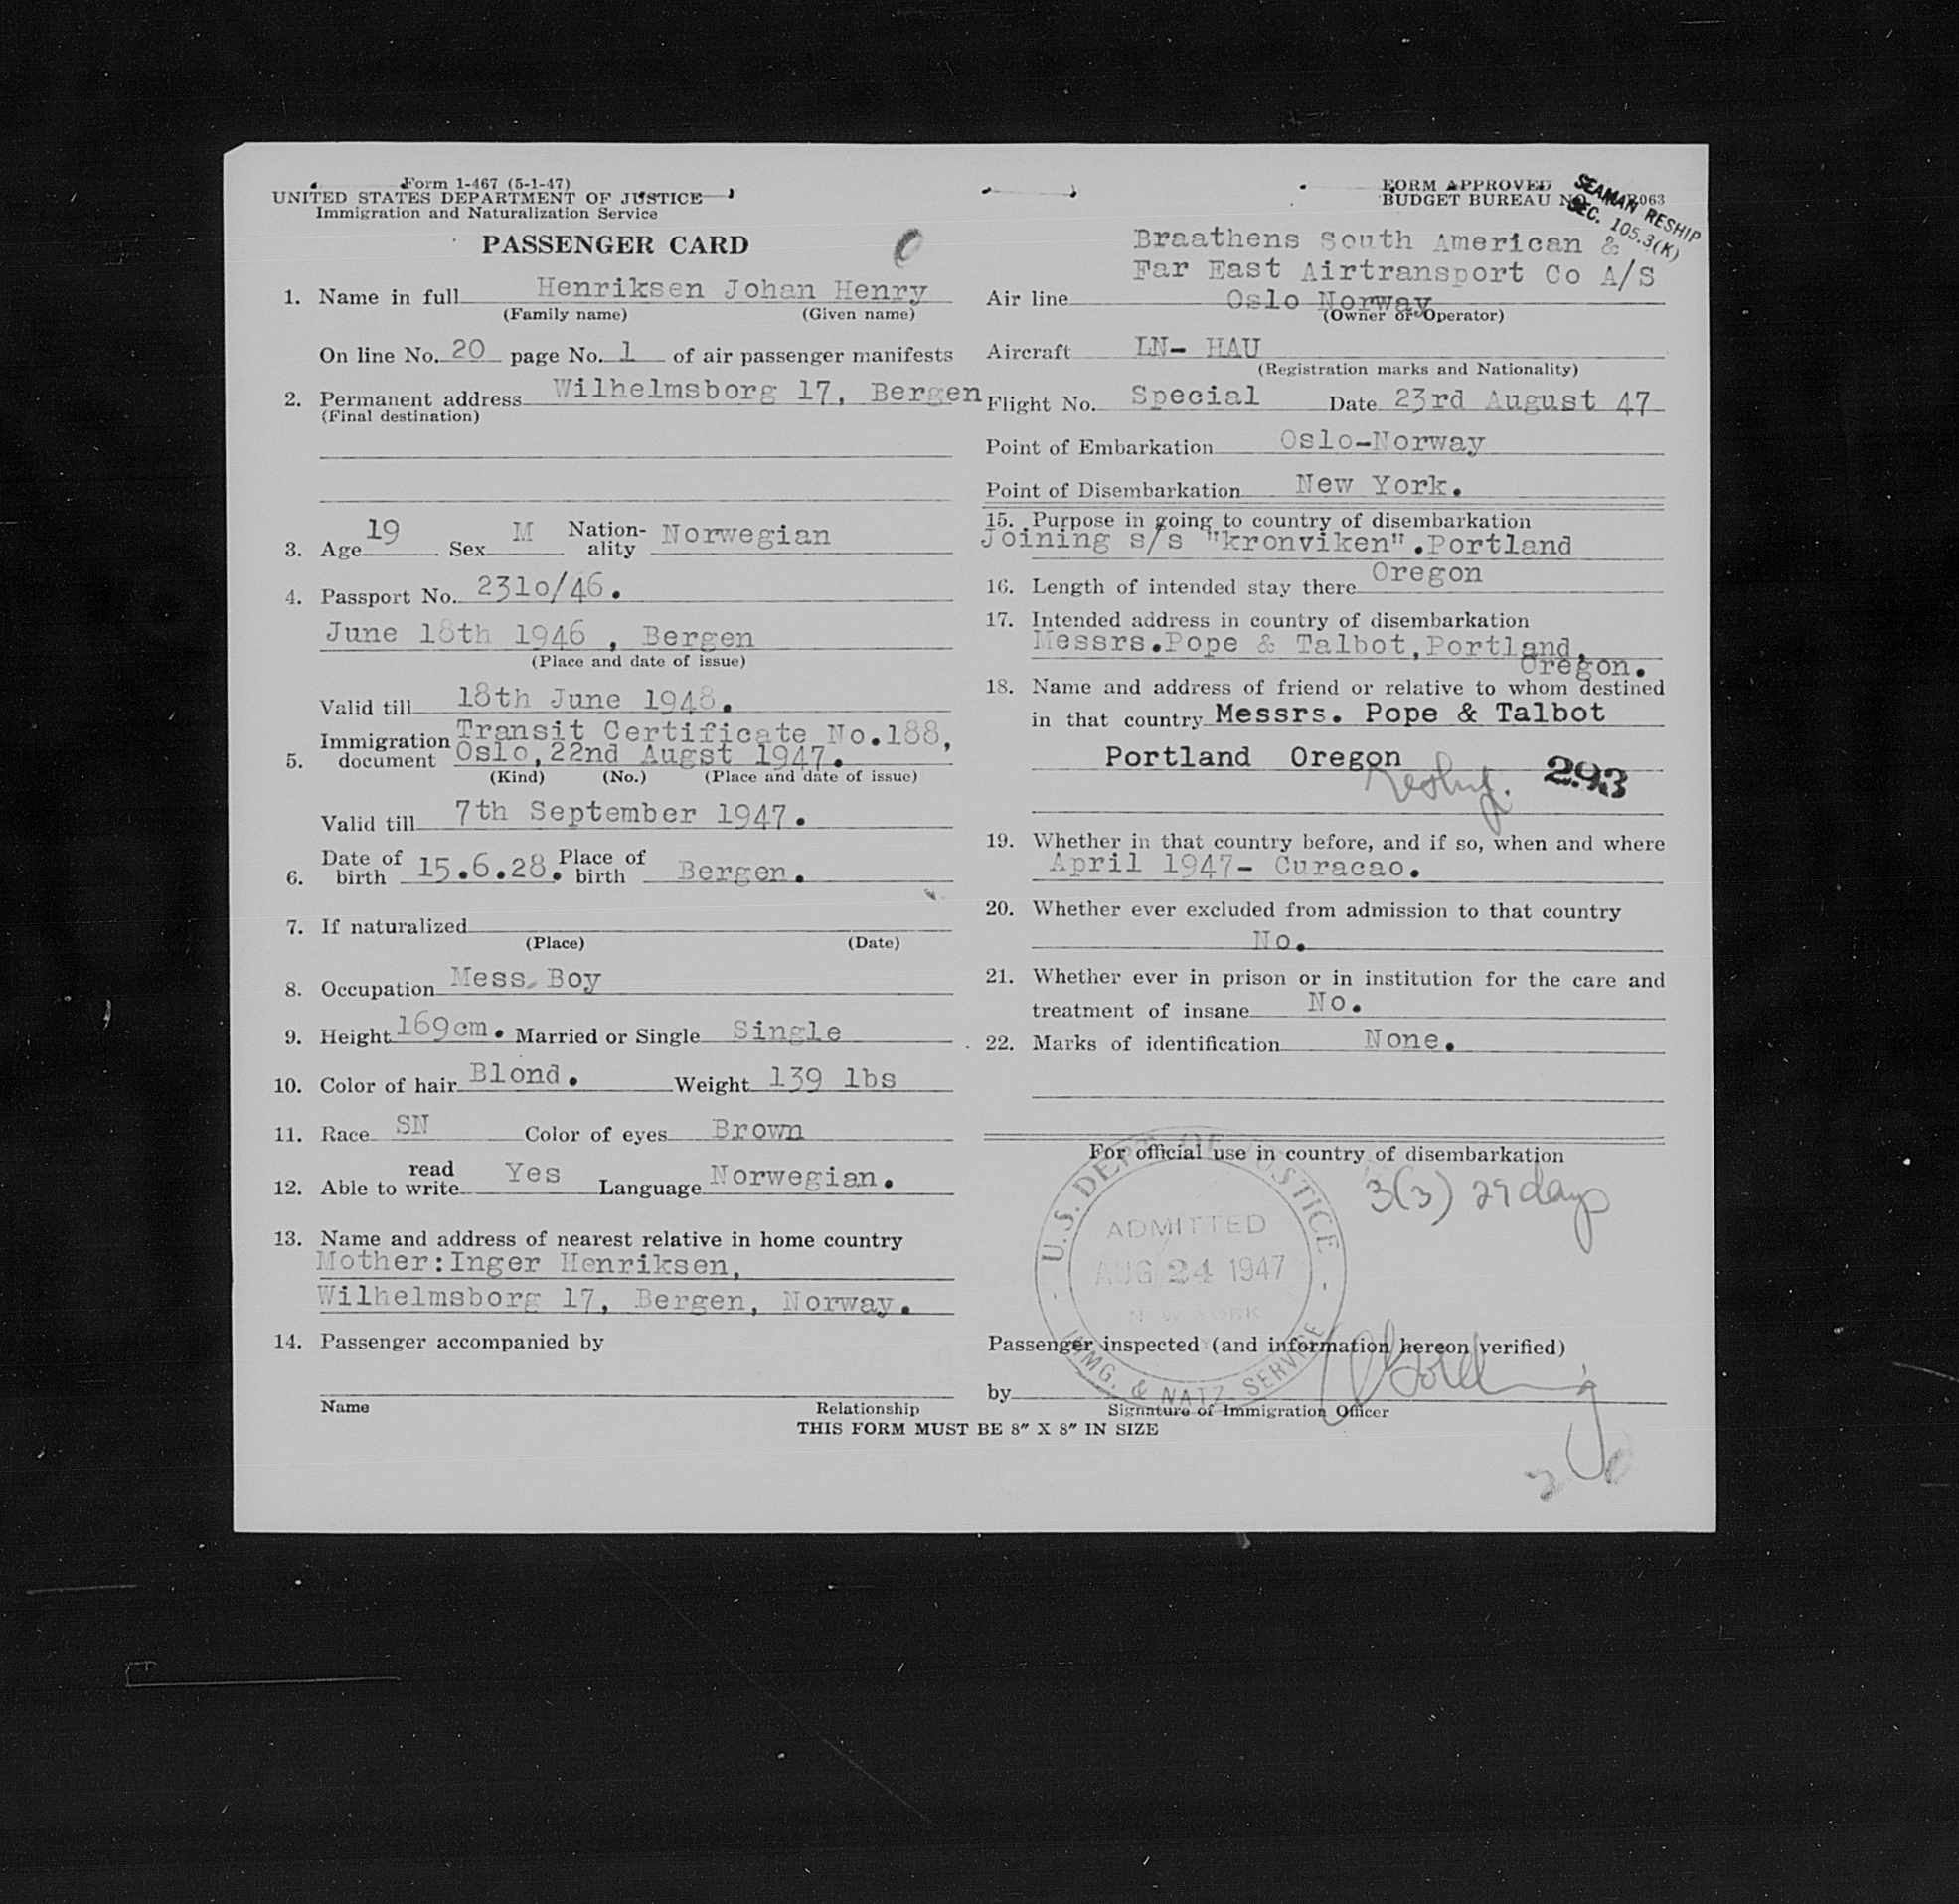 Form 1-467 (5-1-47)
UNITED STATES DEPARTMENT OF JUSTICE
Immigration and Naturalization Service
PASSENGER CARD
1. Name in full Henriksen Johan Henry
(Family name) (Given name)
On line No. 20 page No. 1 of air passenger manifests
2. Permanent address Wilhelmsborg 17, Bergen
(Final destination)
3. Age 19 Sex M Nation-ality Norwegian
4. Passport No. 231o/46.
June 18th 1946 , Bergen
(Place and date of issue)
Valid till 18th June 1948.
5. Immigration document Transit Certificate No.188,
Oslo,22nd Augst 1947.
(Kind) (No.) (Place and date of issue)
Valid till 7th September 1947.
6. Date of birth 15.6.28. Place of birth Bergen.
7. If naturalized
(Place) (Date)
8. Occupation Mess Boy
9. Height 169cm. Married or Single Single
10. Color of hair Blond. Weight 139 lbs
11. Race SN Color of eyes Brown
12. Able to read write Yes Language Norwegian.
13. Name and address of nearest relative in home country
Mother:Inger Henriksen,
Wilhelmsborg 17, Bergen, Norway.
14. Passenger accompanied by
Name Relationship
FORM APPROVED
BUDGET BUREAU
SEAMAN RESHIP
SEC. 105.3(K)
Braathens South American &
Far East Airtransport Co A/S
Air line Oslo Norway
(Owner or Operator)
Aircraft LN- HAU
(Registration marks and Nationality)
Flight No. Special Date 23rd August 47
Point of Embarkation Oslo-Norway
Point of Disembarkation New York.
15. Purpose in going to country of disembarkation
Joining s/s "kronviken".Portland
Oregon
16. Length of intended stay there
17. Intended address in country of disembarkation
Messrs.Pope & Talbot,Portland,
Oregon.
18. Name and address of friend or relative to whom destined
in that country Messrs. Pope & Talbot
Portland Oregon
reship. 293
19. Whether in that country before, and if so, when and where
April 1947- Curacao.
20. Whether ever excluded from admission to that country
No.
21. Whether ever in prison or in institution for the care and
treatment of insane No.
22. Marks of identification None.
For official use in country of disembarkation
3(3) 29 days
U.S. DEPT. OF JUSTICE
ADMITTED
AUG 24 1947
NEW YORK
IMMG. & NATZ. SERVICE
Passenger inspected (and information hereon verified)
by
Signature of Immigration Officer
THIS FORM MUST BE 8" X 8" IN SIZE